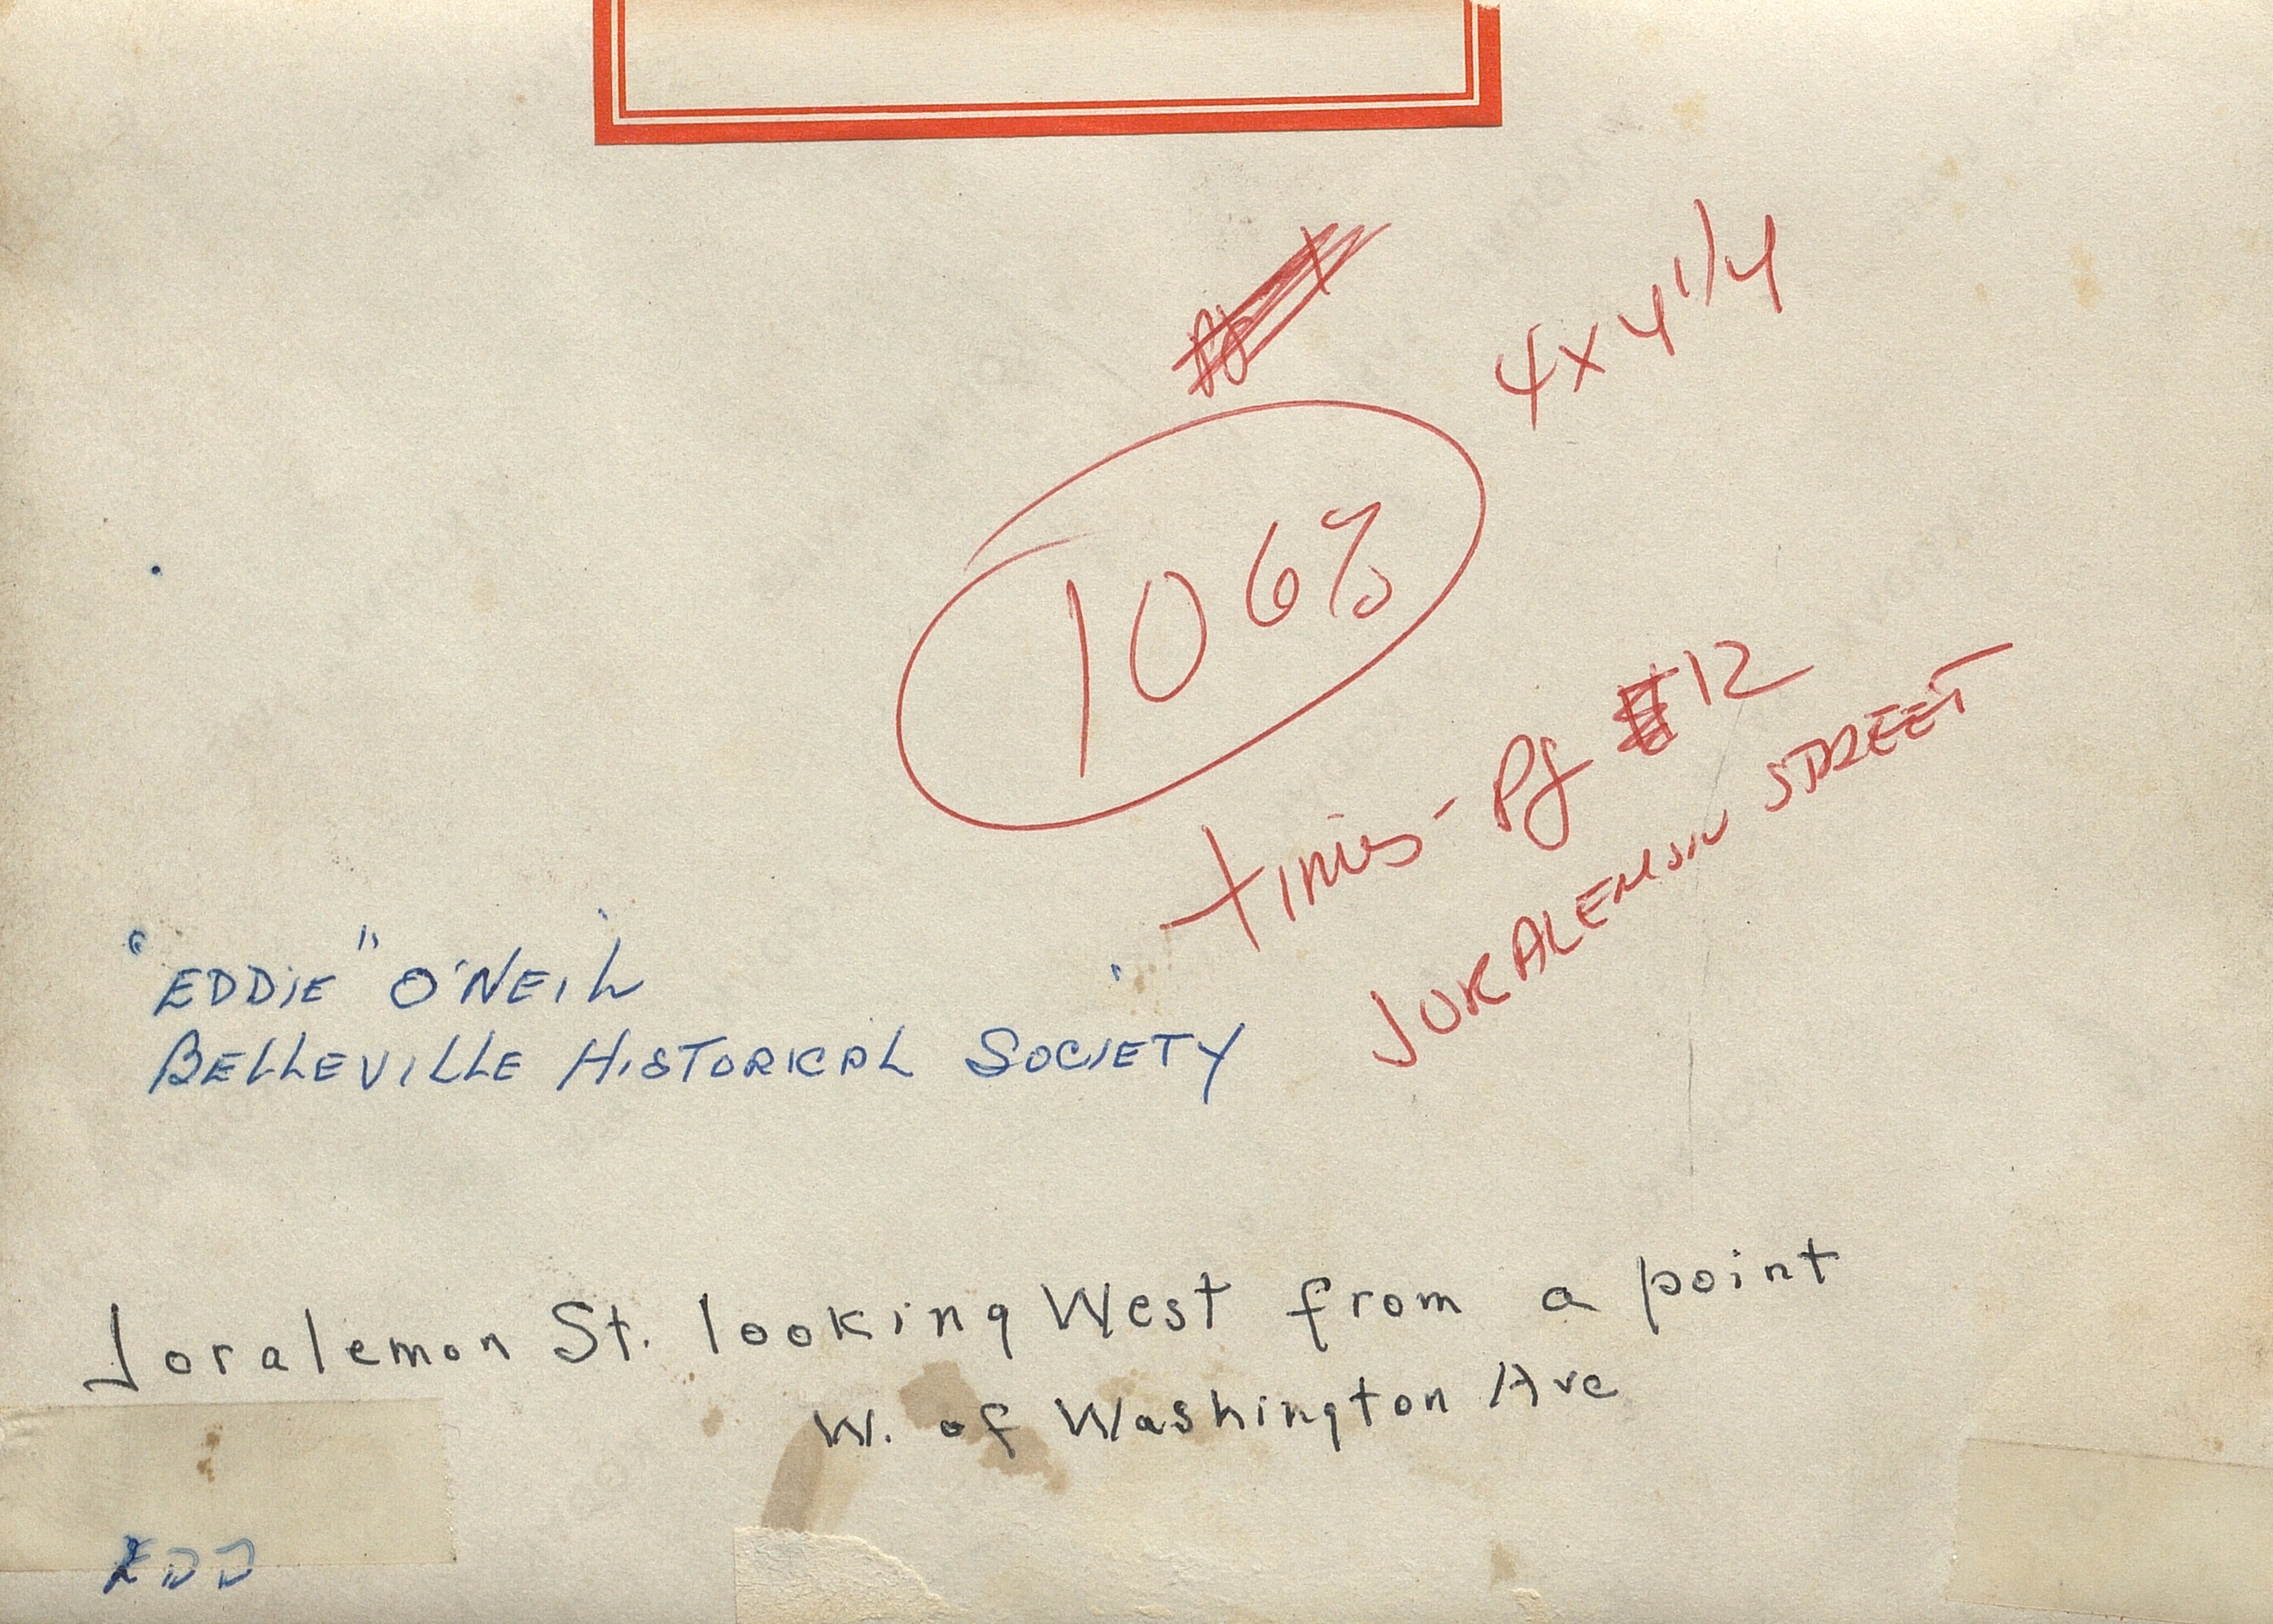 4x4 1/4
106%
times - Pg #12
JORALEMON STREET
"EDDIE" O'NEIL
BELLEVILLE HISTORICAL SOCIETY
Joralemon St. looking West from a point
W. of Washington Ave
EDD